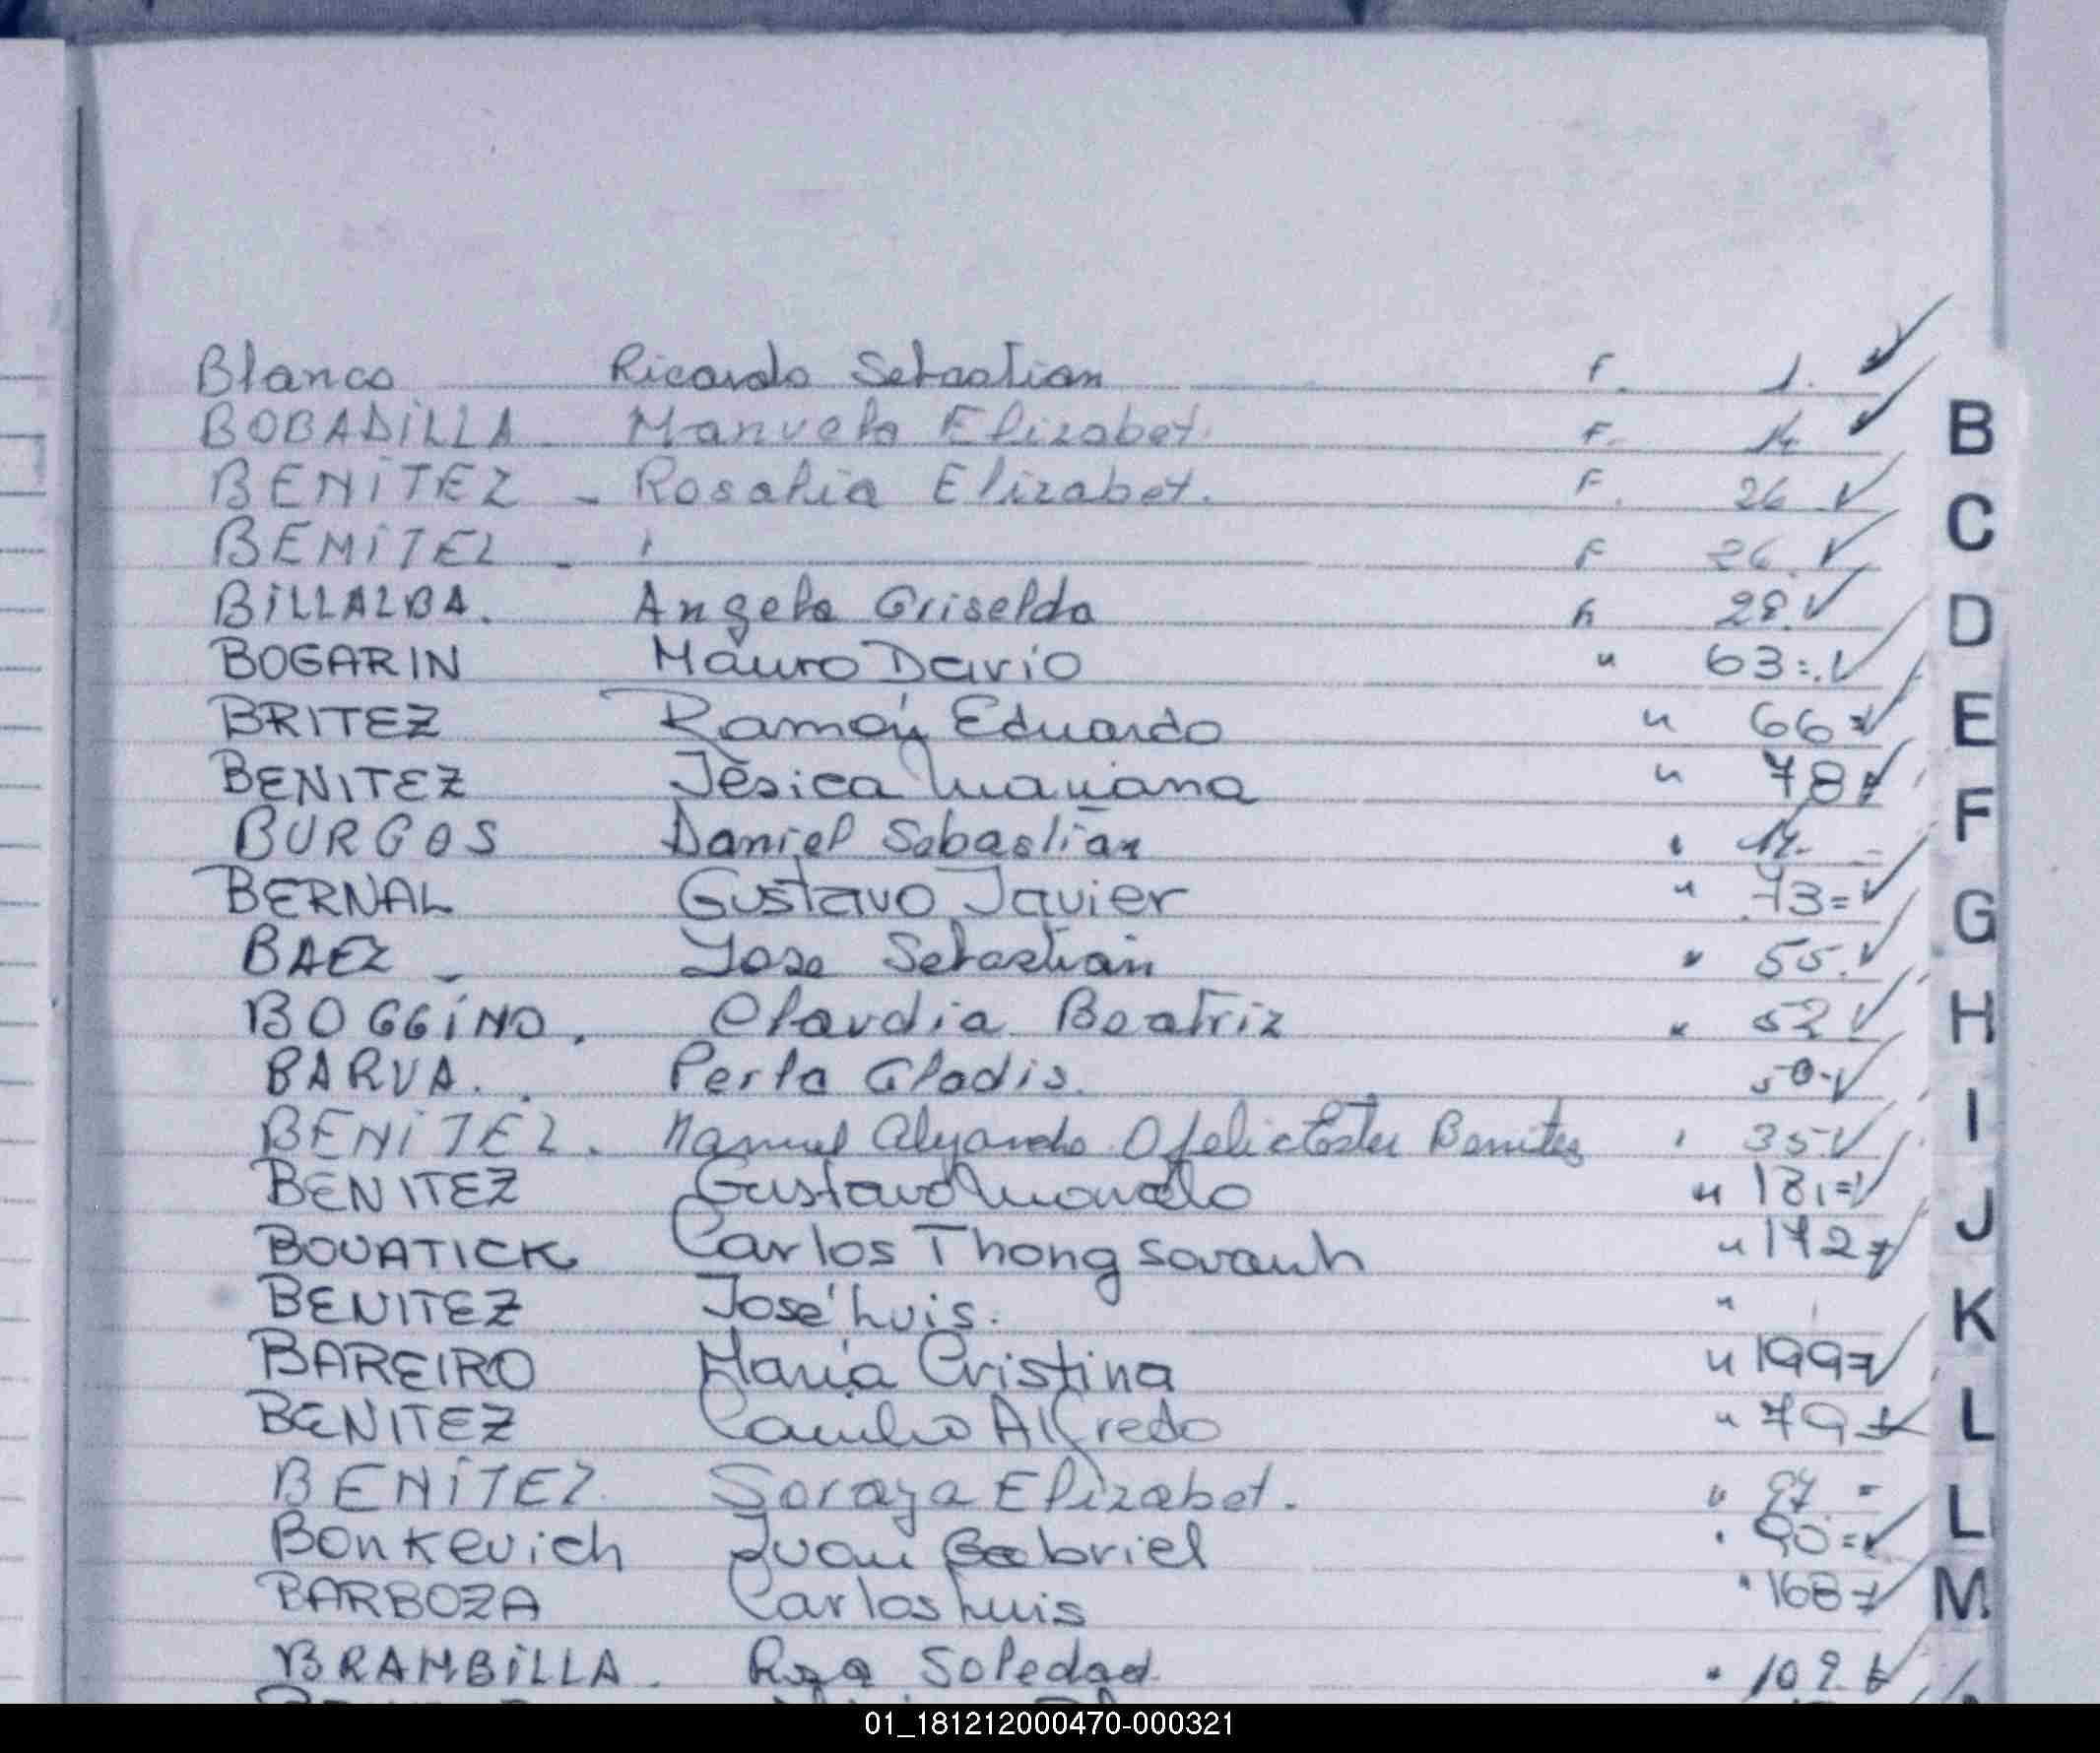 Blanco Ricardo Sebastian F. 1.
BOBADILLA Manuela Elizabet F. 14
BENITEZ - Rosalia Elizabet. F. 26
BENITEZ - " F 26.
BILLALBA. Angela Griselda 28.
BOGARIN Mauro Dario " 63=
BRITEZ Ramón Eduardo " 66=
BENITEZ Jésica Mariana " 78=
BURGOS Daniel Sebastian " 14.
BERNAL Gustavo Javier " 73=
BAEZ - Jose Sebastian " 55.
BOGGINO. Claudia Beatriz " 52
BARUA. Perla Gladis. 50-
BENITEZ. Manuel Alejandro Ofelia Ester Benitez " 35
BENITEZ Gustavo " 181=
BOUATICK Carlos Thong Sovanh " 172=
BENITEZ José Luis. "
BAREIRO María Cristina " 199=
BENITEZ Camilo Alfredo " 79=
BENITEZ Soraya Elizabet. " 97 =
Bonkevich Juan Gabriel " 90=
BARBOZA Carlos Luis " 168=
BRAMBILLA. Rosa Soledad " 109
B
C
D
E
F
G
H
I
J
K
L
LL
M
01_181212000470-000321